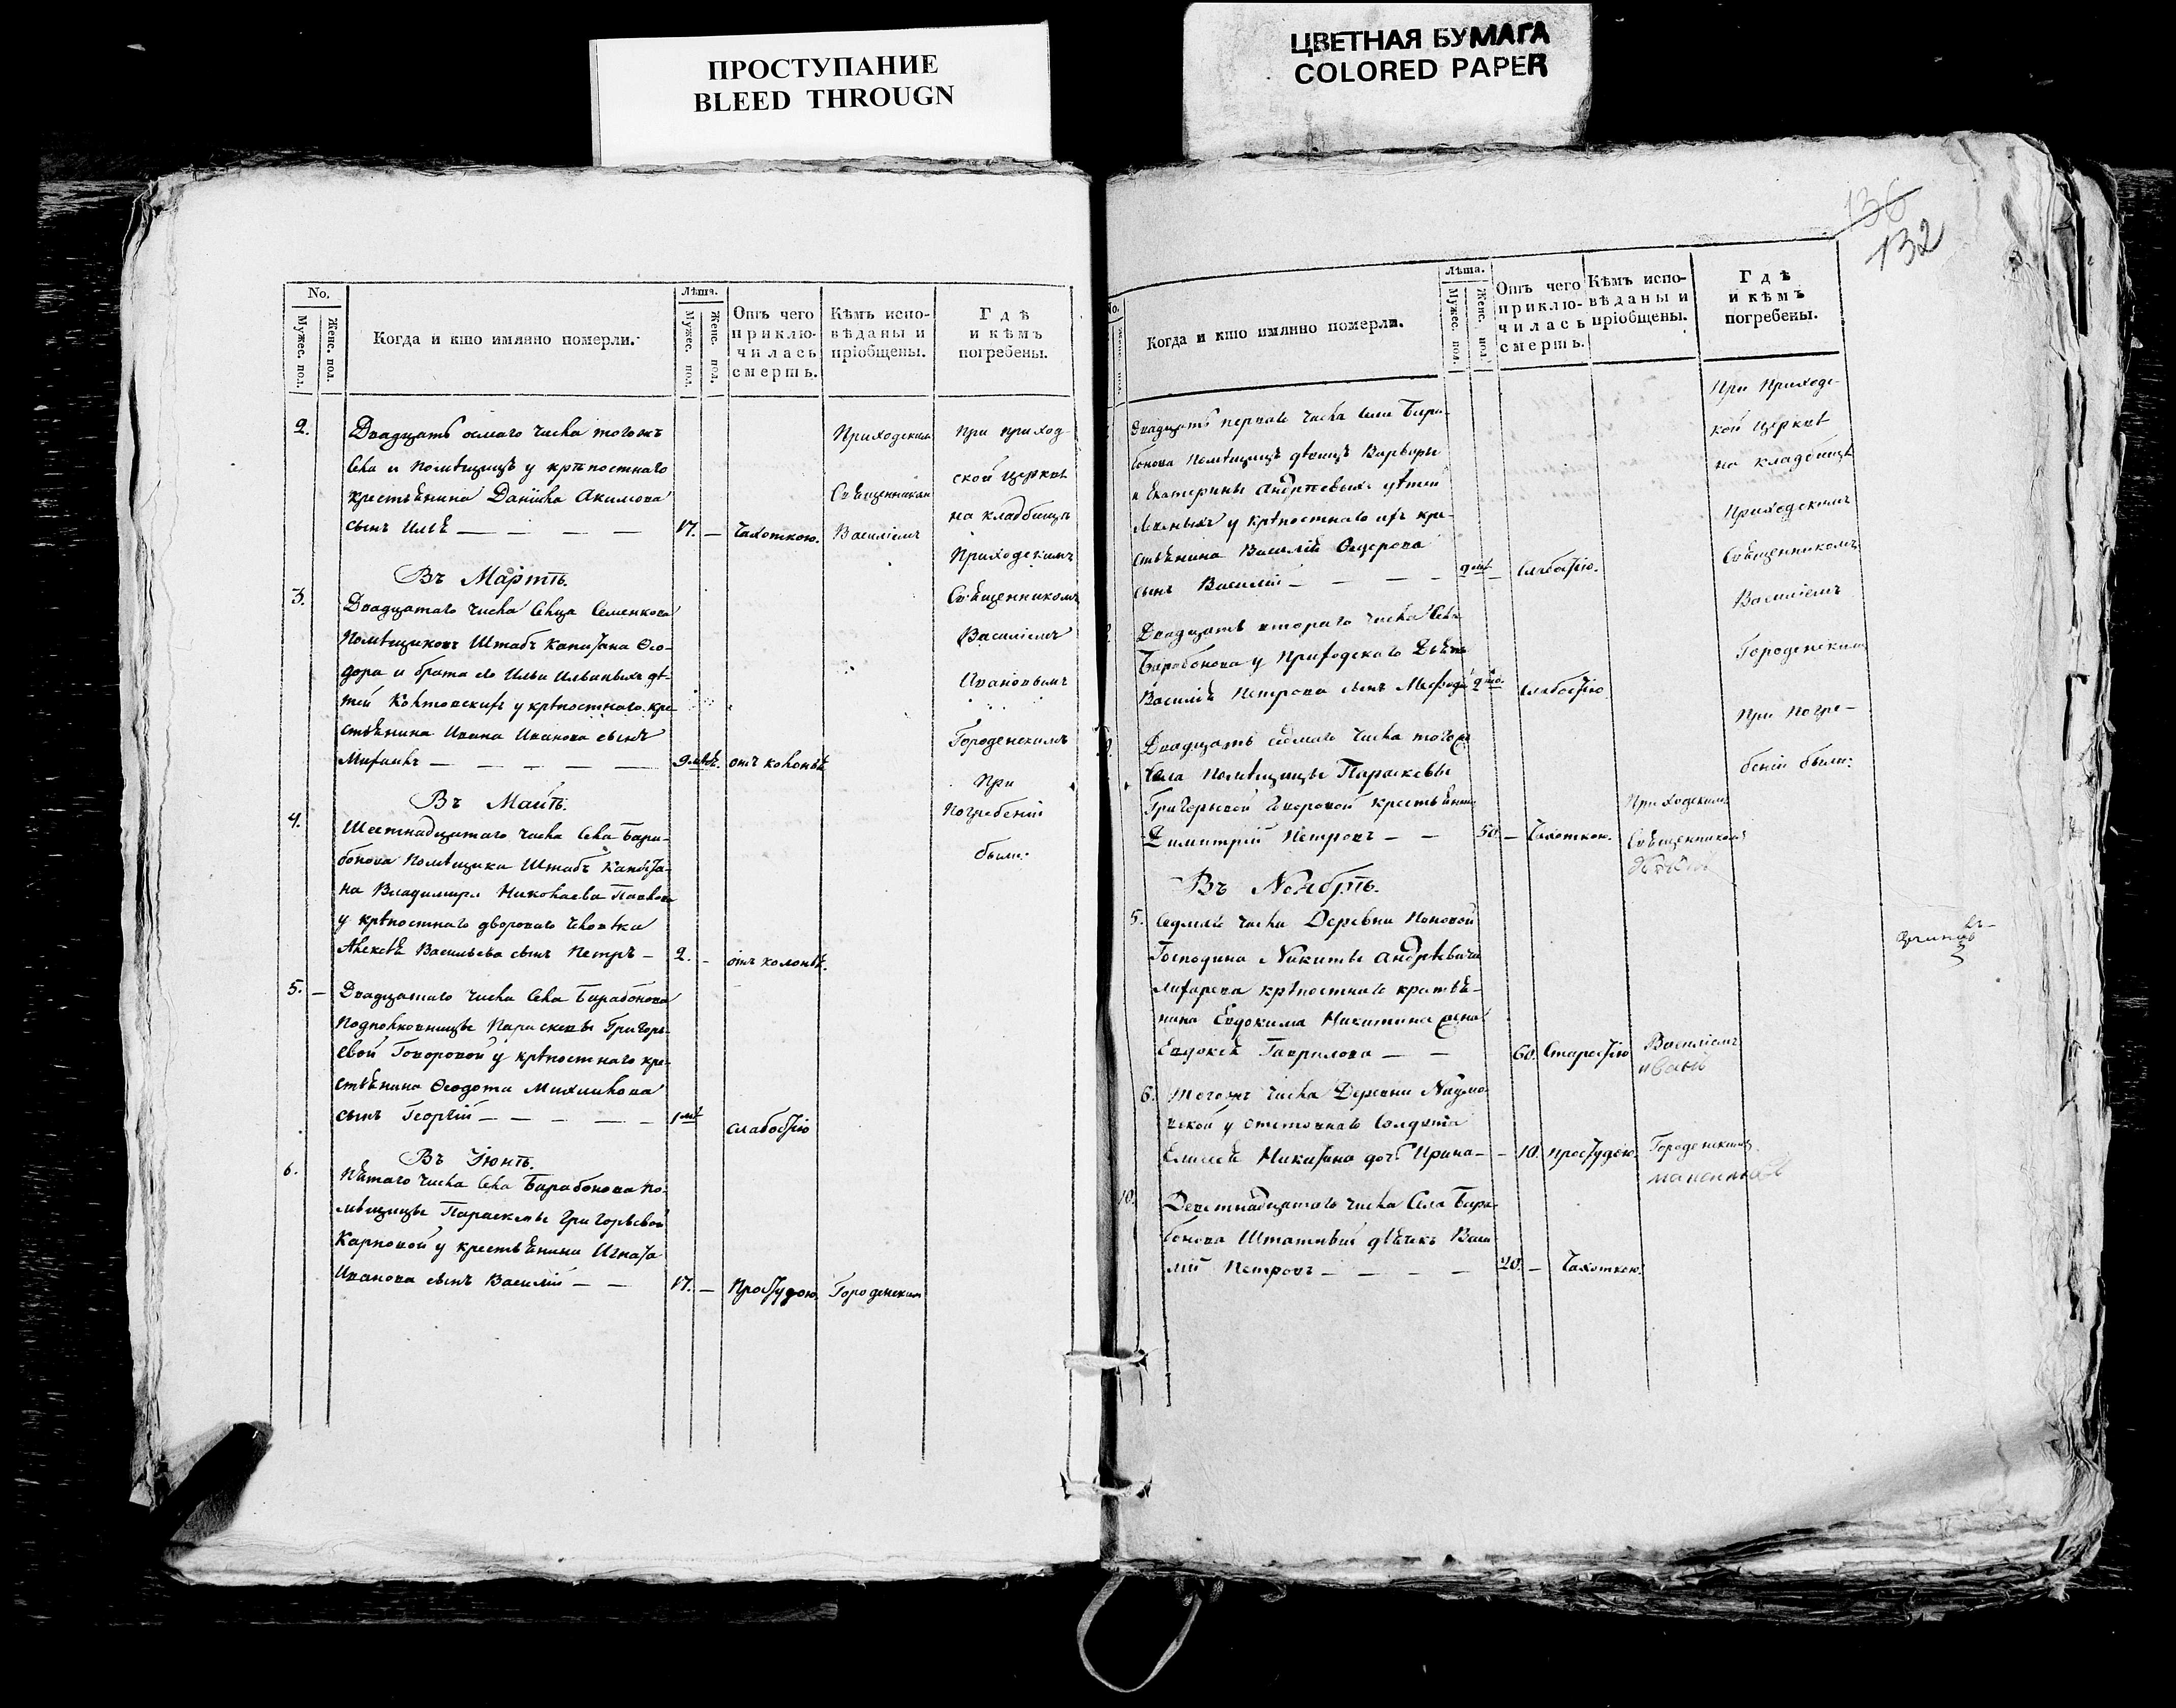 ПРОСТУПАНИЕ
BLEED THROUGN
ЦВЕТНАЯ БУМАГА
COLORED PAPER
136
132
No.
Мужес. пол.
Женс. пол.
Когда и кто имянно померли.
Лѣта.
Мужес. пол.
Женс. пол.
Отъ чего
приклю-
чилась
смерть.
Кѣмъ испо-
вѣданы и
пріобщены.
Гдѣ
и кѣмъ
погребены.
2.
Двадцать осмаго числа тогожъ
села и помѣщицъ у крѣпостнаго
крестьянина Данiила Акимова
сынъ Илья — — — —
17. —
Чахоткою.
Приходскимъ
Священникомъ
Василіемъ
При приход-
ской церкви
на кладбищѣ
Приходскимъ
Священникомъ
Василіемъ
Ивановымъ
Городенскимъ
При
Погребеніи
были:
Въ Мартѣ.
3.
Двадцатаго числа сельца Семенкова
Помѣщиковъ Штабъ Капитана Ѳео-
дора и брата его Ильи Ильиныхъ дѣ-
тей у крѣпостнаго кре-
стьянина Ивана Иванова сынъ
Михаилъ — — — — —
отъ колотья
Въ Маiѣ.
4.
Шестнадцатаго числа села Бара-
бонова Помѣщика Штабъ Капита-
на Владимира Николаева Павлова
у крѣпостнаго двороваго человѣка
Алексѣя Васильева сынъ Петръ —
2. —
отъ колотья.
5. —
Двадцатаго числа села Барабонова
Подполковницы Параскевы Григорь-
евой Говоровой у крѣпостнаго кре-
стьянина Ѳеодота Михаилова
сынъ Георгій — — — — —
слабостію
Въ Іюнѣ.
6.
Пятаго числа села Барабонова по-
мѣщицы Параскевы Григорьевой
Карповой у крестьянина Игната
Иванова сынъ Василій — —
17. —
Простудою.
Городенскимъ
No.
Когда и кто имянно померли.
Лѣта.
Мужес. пол.
Женс. пол.
Отъ чего
приклю-
чилась
смерть.
Кѣмъ испо-
вѣданы и
пріобщены.
Гдѣ
и кѣмъ
погребены.
Двадцать перваго числа села Бара-
бонова Помѣщицъ дѣвицъ Варвары
и Екатерины Андрѣевыхъ
у крѣпостнаго ихъ кре-
стьянина Василія Ѳедорова
сынъ Василій — — — —
слабостію.
При Приходс-
кой церкви
на кладбищѣ
Приходскимъ
Священникомъ
Василіемъ
Городенскимъ
При погре-
беніи были:
Двадцать втораго числа села
Барабонова у Приходскаго Дьячка
Василія Петрова сынъ
слабостію
Двадцать седмаго числа тогожъ
села помѣщицы Параскевы
Григорьевой Говоровой крестьянинъ
Димитрій Петровъ — —
50. —
Чахоткою.
Приходскимъ
Священникомъ
Въ Ноябрѣ.
5.
Седмаго числа Деревни Поповой
Господина Никиты Андрѣевича
крѣпостнаго крестья-
нина Евдокима Никитина жена
Евдокія Гаврилова — —
60.
Старостію
Василіемъ
6.
Тогожъ числа Деревни Наумо-
вской у отставнаго солдата
Елисея Никитина дочь Ирина —
— 10.
простудою.
Городенскимъ
10.
Девятнадцатаго числа села Бара-
бонова Штатный дьячекъ Васи-
лій Петровъ — — — —
20. —
Чахоткою.